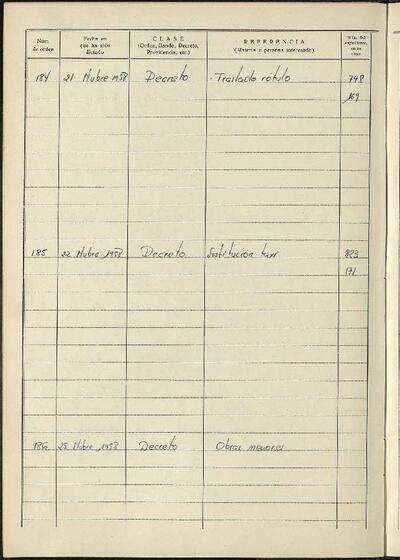 Núm. de orden
Fecha en que ha sido dictado
CLASE
(Orden, Bando, Decreto, Providencia, etc.)
REFERENCIA
(Materia o persona interesada)
Núm. del expediente, en su caso
184 21 Nubre 1958 Decreto Traslado rótulo 798
169
185 22 Nubre 1958 Decreto Sustitución taxi 883
171
186 25 Nubre 1958 Decreto Obras menores